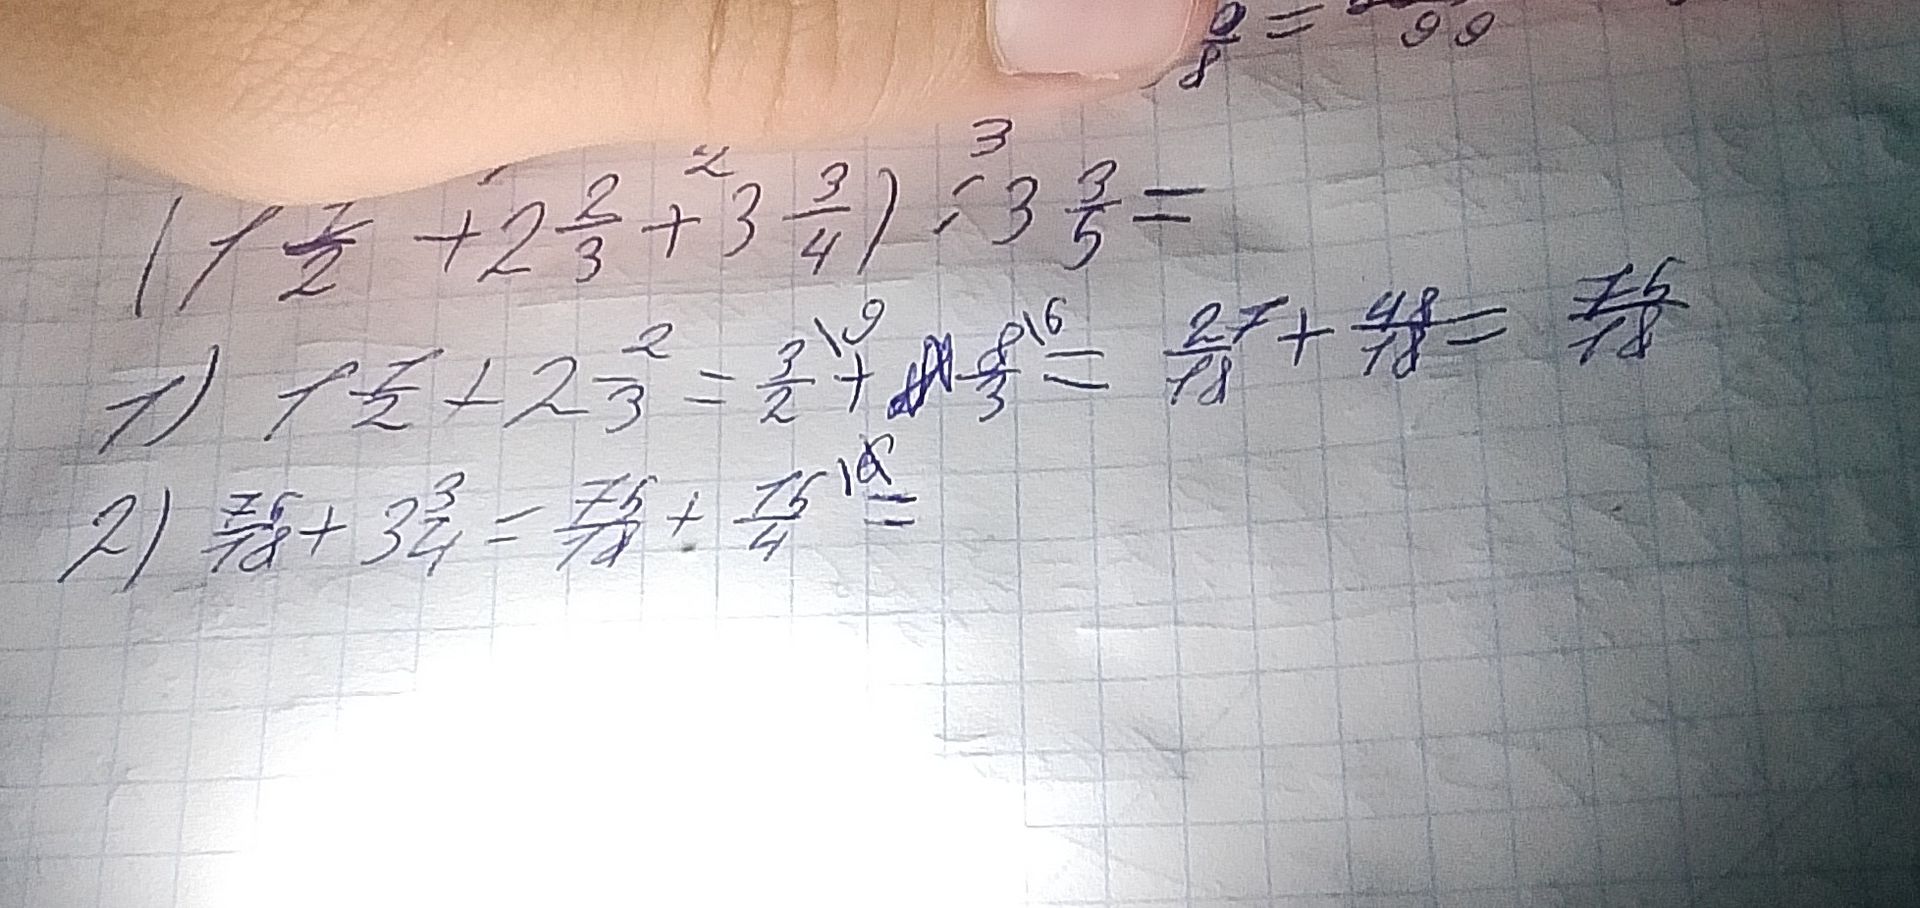 8 = 99
1 2 3
(1 1/2 + 2 2/3 + 3 3/4) : 3 3/5 =
1) 1 1/2 + 2 2/3 = 3/2 \9 + 8/3 \6 = 27/18 + 48/18 = 75/18
2) 75/18 + 3 3/4 = 75/18 + 15/4 =